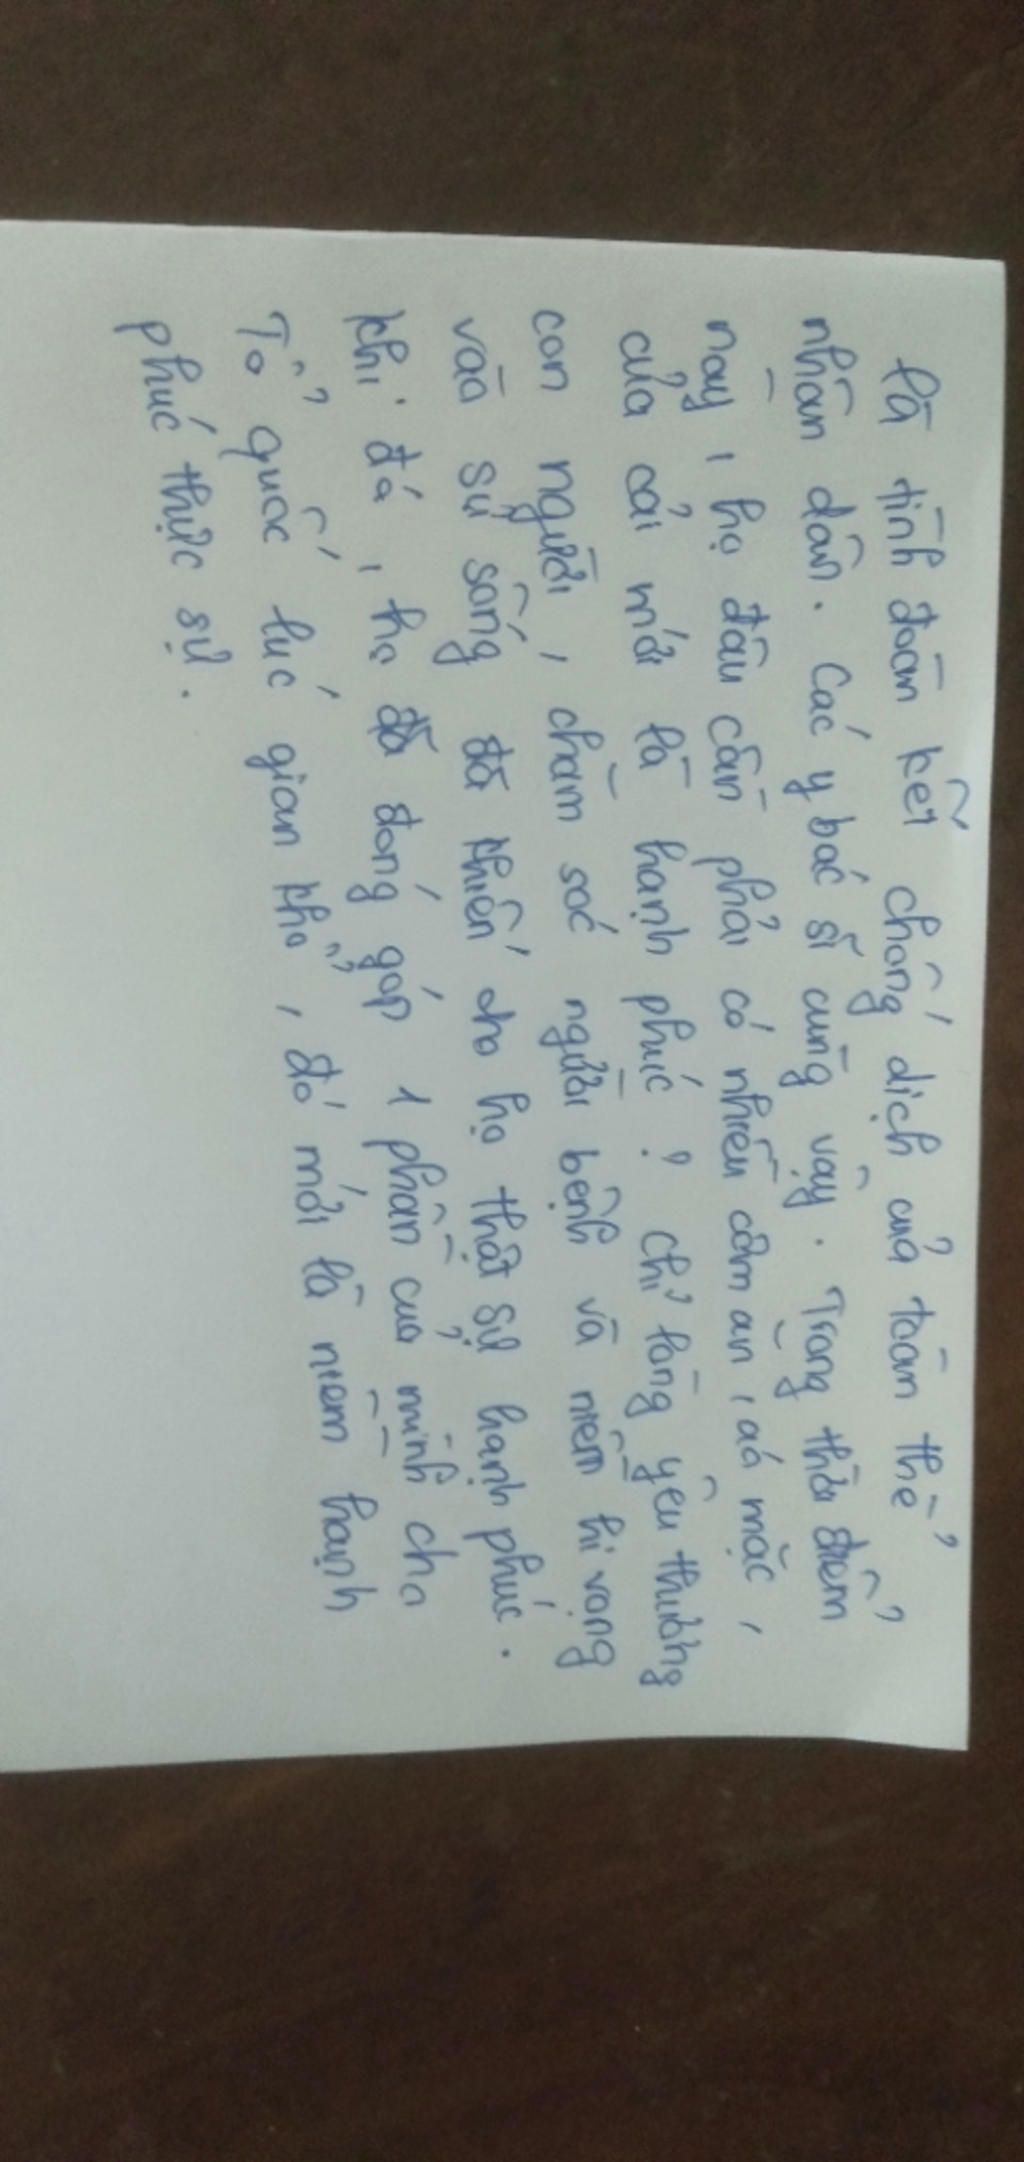 là tình đoàn kết chống dịch của toàn thể
nhân dân. Các y bác sĩ cũng vậy. Trong thời điểm
này, họ đâu cần phải có nhiều cơm ăn, áo mặc,
của cải mới là hạnh phúc? Chỉ lòng yêu thương
con người, chăm sóc người bệnh và niềm hi vọng
vào sự sống đã khiến cho họ thật sự hạnh phúc.
Khi đó, họ đã đóng góp 1 phần của mình cho
Tổ quốc lúc gian khổ, đó mới là niềm hạnh
phúc thực sự.